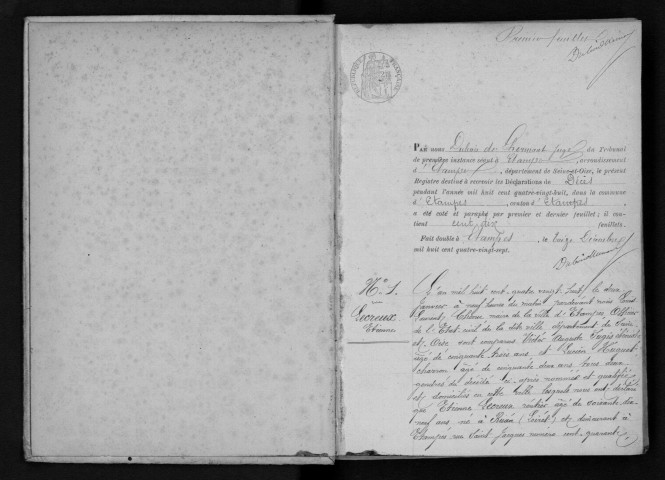 Premier feuillet
RÉPUBLIQUE FRANÇAISE
PAR nous Dubois de Lhermont juge du Tribunal
de première instance séant à Etampes, arrondissement
d'Etampes, département de Seine-et-Oise, le présent
Registre destiné à recevoir les Déclarations de Décès
pendant l'année mil huit cent quatre-vingt-huit, dans la commune
d'Etampes, canton d'Etampes
a été coté et paraphé par premier et dernier feuillet; il con-
tient cent dix feuillets.
Fait double à Etampes, ce Décembre
mil huit cent quatre-vingt-sept.
N° 1.
Lecreux
Etienne
L'an mil huit cent quatre vingt huit, le deux
Janvier à neuf heures du matin pardevant nous
Laurent, maire de la ville d'Etampes Officier
de l'Etat-civil de la dite ville département de Seine
et Oise sont comparus Victor Auguste
âgé de cinquante trois ans et Lucien Huguet
charron âgé de cinquante deux ans tous deux
gendres du décédé ci-après nommé et qualifié
et domiciliés en cette ville lesquels nous ont déclaré
que Etienne Lecreux rentier âgé de soixante dix
neuf ans né à Ruan (Loiret) et demeurant à
Etampes rue Saint Jacques numéro cent quarante